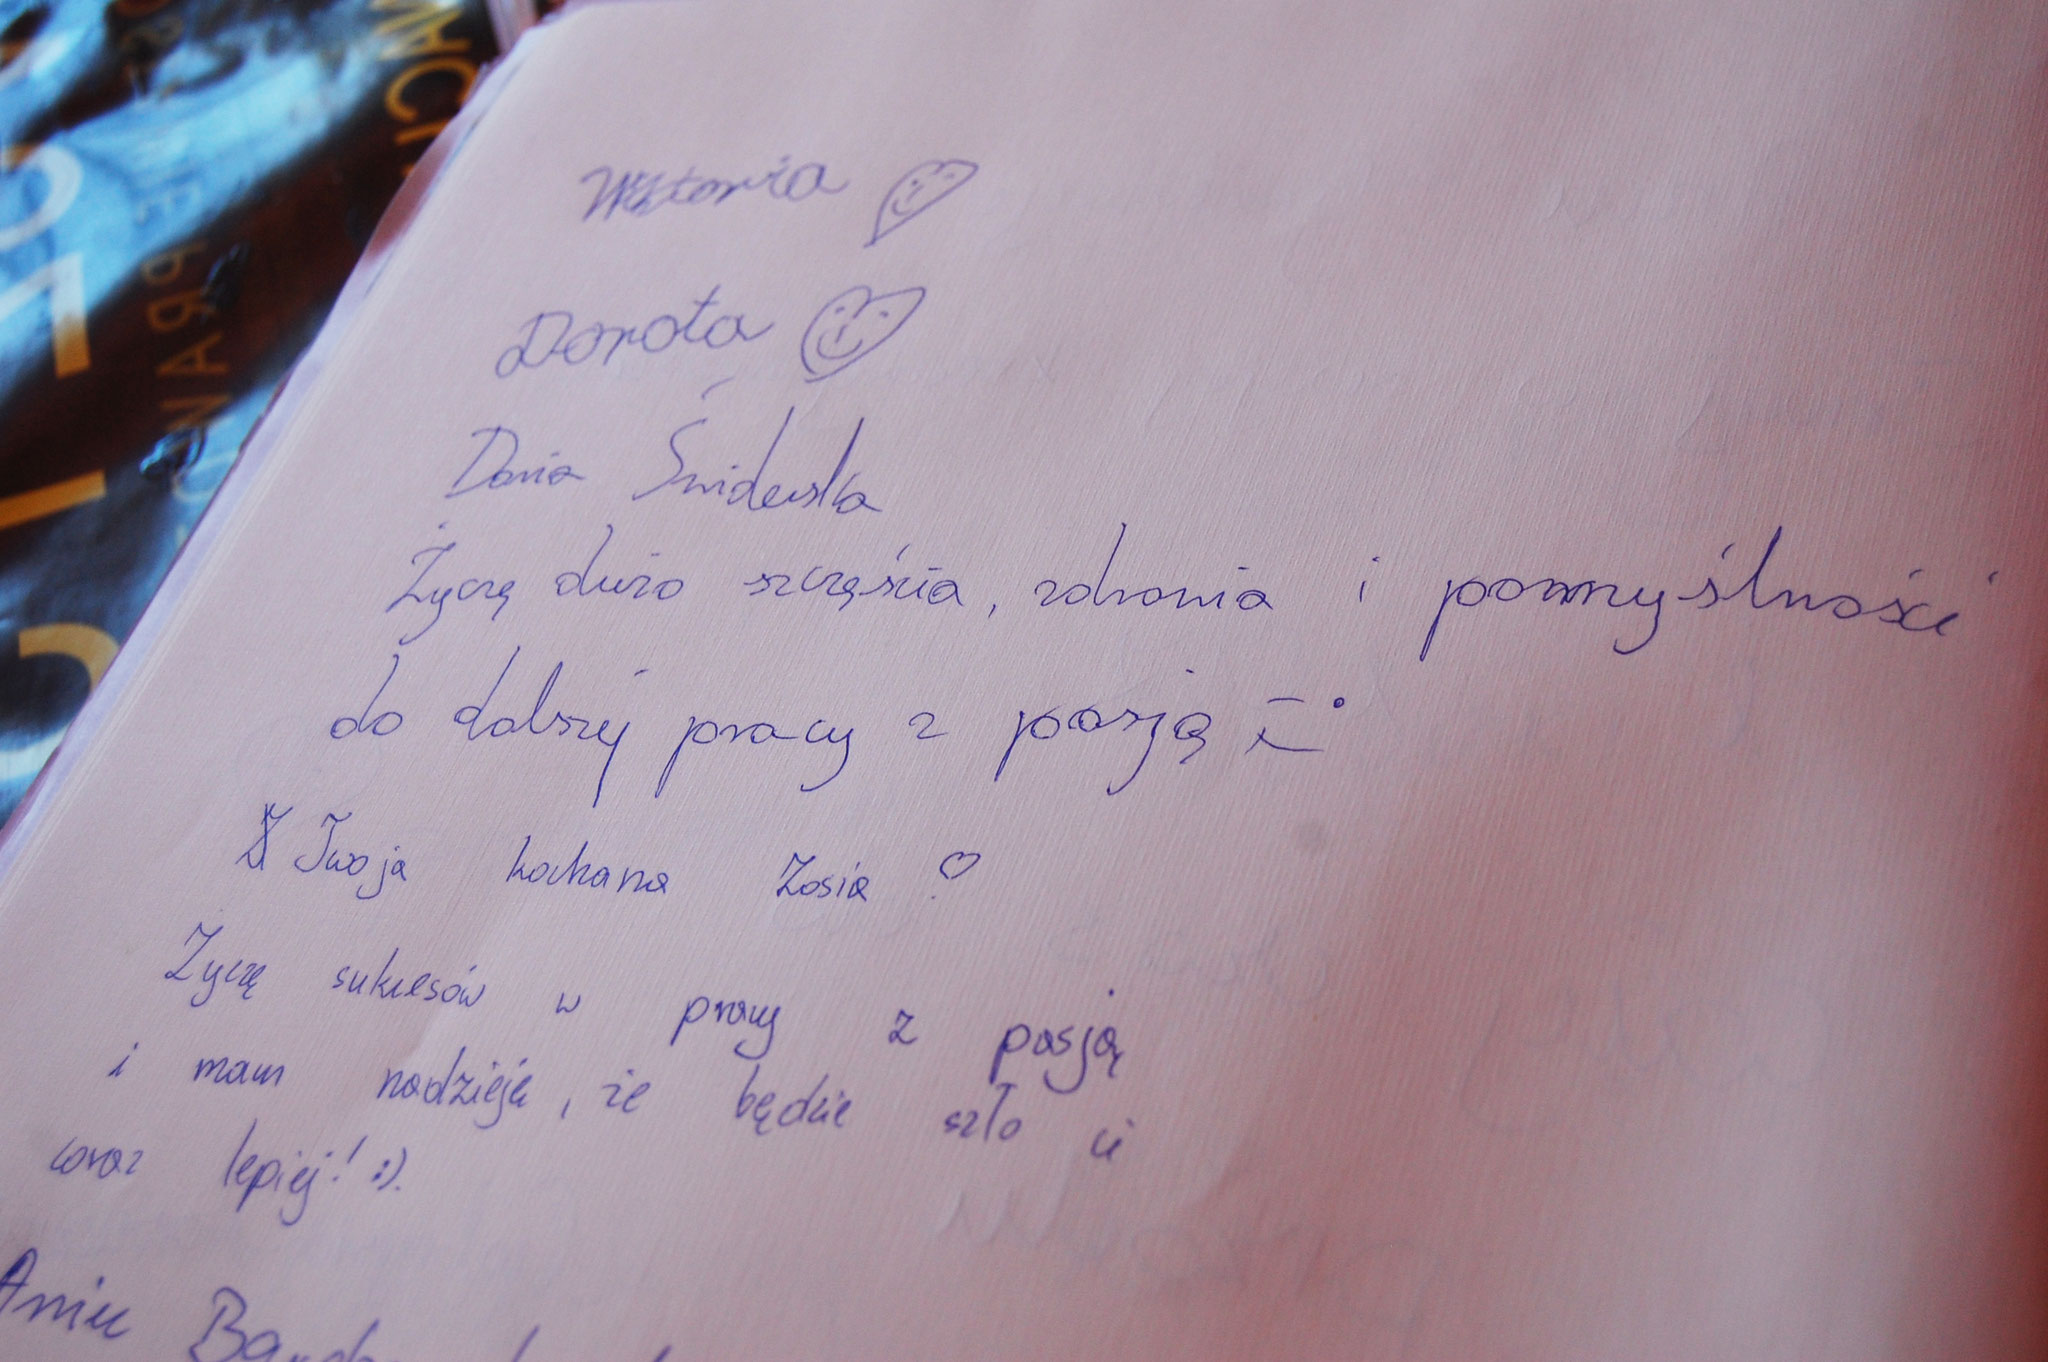 Wiktoria
Dorota
Daria Śniderska
Życzę dużo szczęścia, zdrowia i pommyślności
do dalszej pracy z pasją
Twoja kochana Zosia
Życzę sukcesów w pracy z pasją
i mam nadzieję, że będzie szło ci
coraz lepiej! :).
Aniu